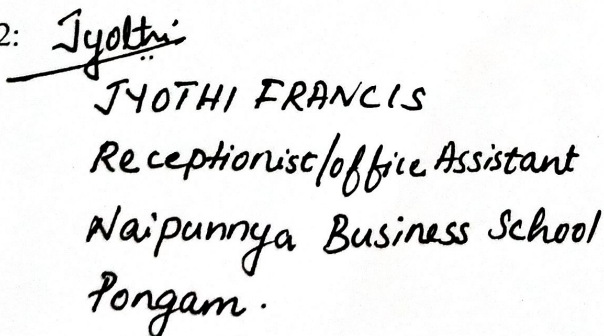 2: Jyothi
JYOTHI FRANCIS
Receptionist/office Assistant
Naipunnya Business School
Pongam.